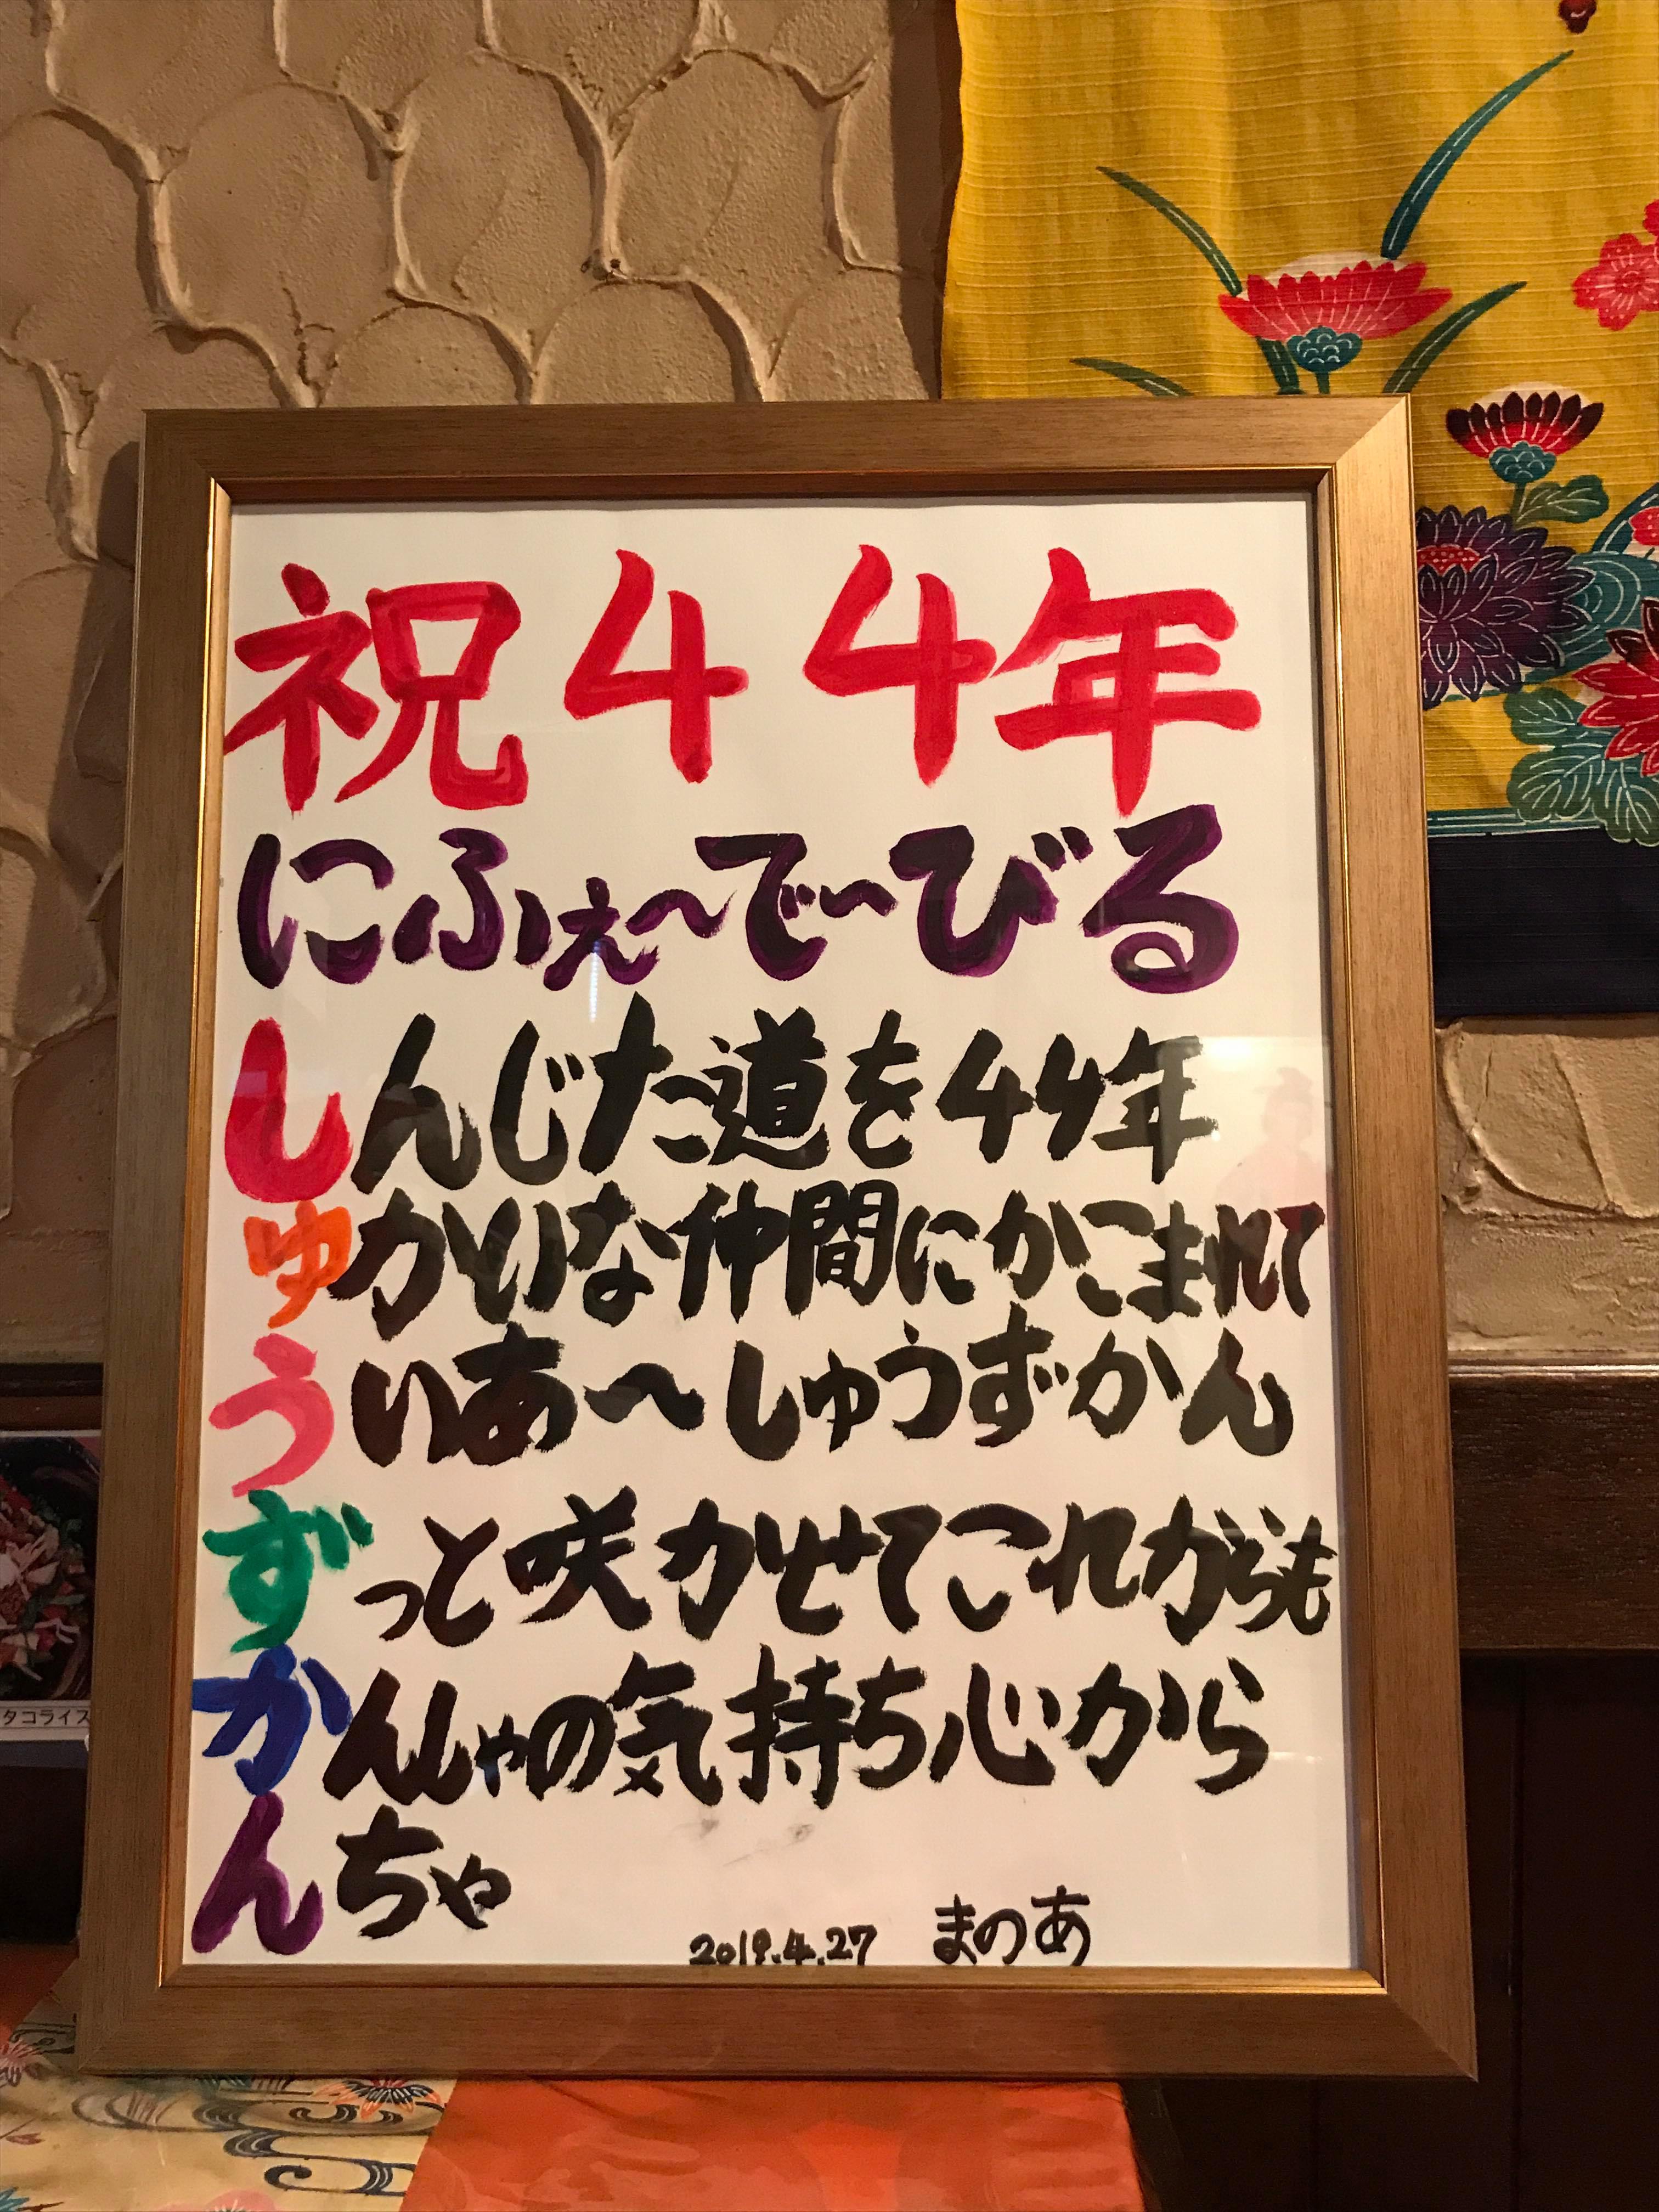 祝44年
にふぇ〜で〜びる
しんじた道を44年
ゆかいな仲間にかこまれて
うぃあ〜しゅうずかん
ずっと咲かせてこれからも
かんしゃの気持ち心から
んちゃ
2019.4.27 まのあ
タコライス